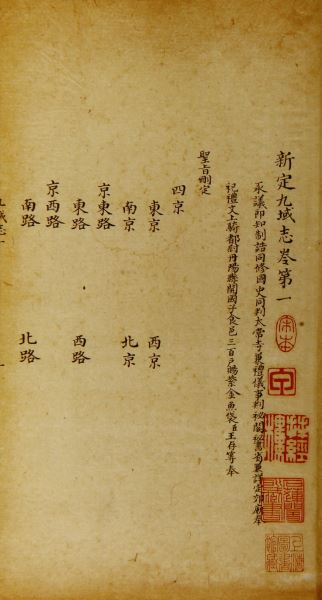 新定九域志卷第一
承議郎知制誥同修國史同判太常寺兼禮儀事判祕閣祕書省兼詳定郊廟奉
祀禮文上騎都尉丹陽縣開國子食邑三百戶賜紫金魚袋臣王存等奉
聖旨刪定
四京
東京 西京
南京 北京
京東路
東路 西路
京西路
南路 北路
九域志一
宋本